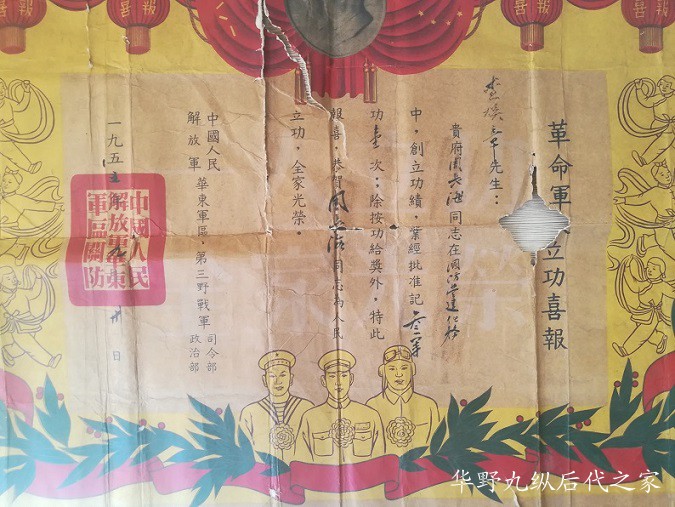 革命軍 立功喜報
先生:
貴府 同志在國防建設
中,創立功績,業經批准記三等
功壹次;除按功給獎外,特此
報喜。恭賀 同志為人民
立功,全家光榮。
中國人民
解放軍
華東軍區·第三野戰軍
司令部
政治部
一九五 日
中國人民
解放軍華東
軍區關防
华野九纵后代之家